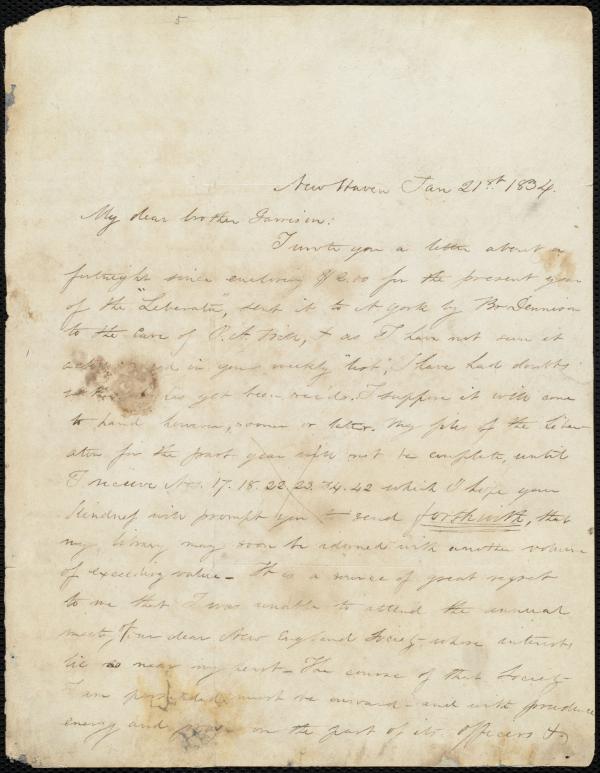 5
New Haven Jan 21st 1834.
My dear brother Garrison:
I wrote you a letter about a
fortnight since enclosing $2.00 for the present year
of the "Liberator", sent it to N York by Br Dennison
to the care of & as I have not seen it
in your weekly "list", I have had doubts
yet been I suppose it will come
to hand however, sooner or later. My files of the Liber-
ator for the past year will not be complete, until
I receive Nos. 17. 18. 22. 23. 24. 42 which I hope your
kindness will prompt you to send forthwith, that
my library may soon be adorned with another volume
of exceeding value - It is a source of great regret
to me that I was unable to attend the annual
meetg of our dear New England Society - whose interests
lie so near my heart - The course of that Society
I am persuaded must be onward - and with prudence
energy and on the part of its officers &